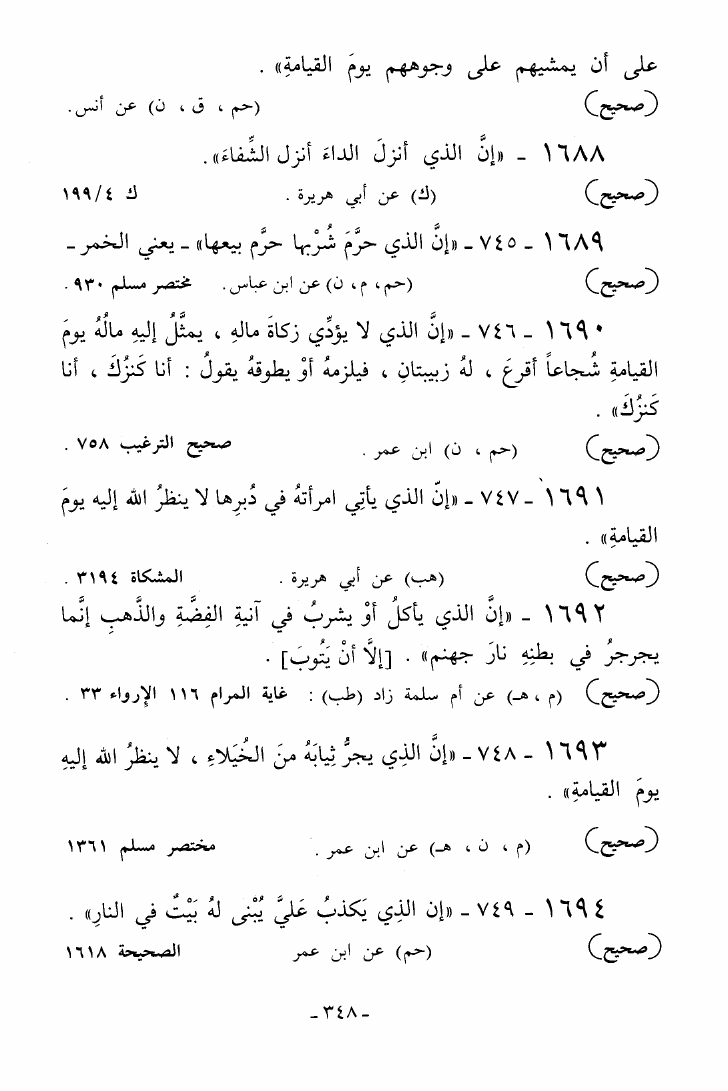 على أن يمشيهم على وجوههم يومَ القيامةِ» .
(صحيح) (حم ، ق ، ن) عن أنس.
١٦٨٨ - «إنَّ الذي أنزلَ الداءَ أنزل الشِّفاءَ».
(صحيح) (ك) عن أبي هريرة . ك ١٩٩/٤
١٦٨٩ - ٧٤٥ - «إنَّ الذي حرَّمَ شُرْبها حرَّم بيعها» - يعني الخمر -
(صحيح) (حم، م، ن) عن ابن عباس. مختصر مسلم ٩٣٠ .
١٦٩٠ - ٧٤٦ - «إنَّ الذي لا يؤدِّي زكاةَ مالهِ ، يمثَّلُ إليهِ مالُهُ يومَ
القيامةِ شُجاعاً أقرعَ ، لهُ زبيبتانِ ، فيلزمهُ أوْ يطوقهُ يقولُ : أنا كَنزُكَ ، أنا
كَنزُكَ» .
(صحيح) (حم ، ن) ابن عمر . صحيح الترغيب ٧٥٨ .
١٦٩١ - ٧٤٧ - «إنّ الذي يأتِي امرأتهُ في دُبرِها لا ينظرُ الله إليه يومَ
القيامةِ» .
(صحيح) (هب) عن أبي هريرة . المشكاة ٣١٩٤ .
١٦٩٢ - «إنَّ الذي يأكلُ أوْ يشربُ في آنيةِ الفِضَّةِ والذَّهبِ إنَّما
يجرجرُ في بطنِهِ نارَ جهنم» . [إلَّا أنْ يَتُوبَ] .
(صحيح) (م ، هـ) عن أم سلمة زاد (طب) : غاية المرام ١١٦ الإرواء ٣٣ .
١٦٩٣ - ٧٤٨ - «إنَّ الذِي يجرُّ ثِيابَهُ منَ الخُيَلاءِ ، لا ينظرُ الله إليهِ
يومَ القيامةِ» .
(صحيح) (م ، ن ، هـ) عن ابن عمر . مختصر مسلم ١٣٦١
١٦٩٤ - ٧٤٩ - «إن الذِي يَكذبُ عَليَّ يُبْنى لهُ بَيْتٌ في النارِ» .
(صحيح) (حم) عن ابن عمر الصحيحة ١٦١٨
- ٣٤٨ -